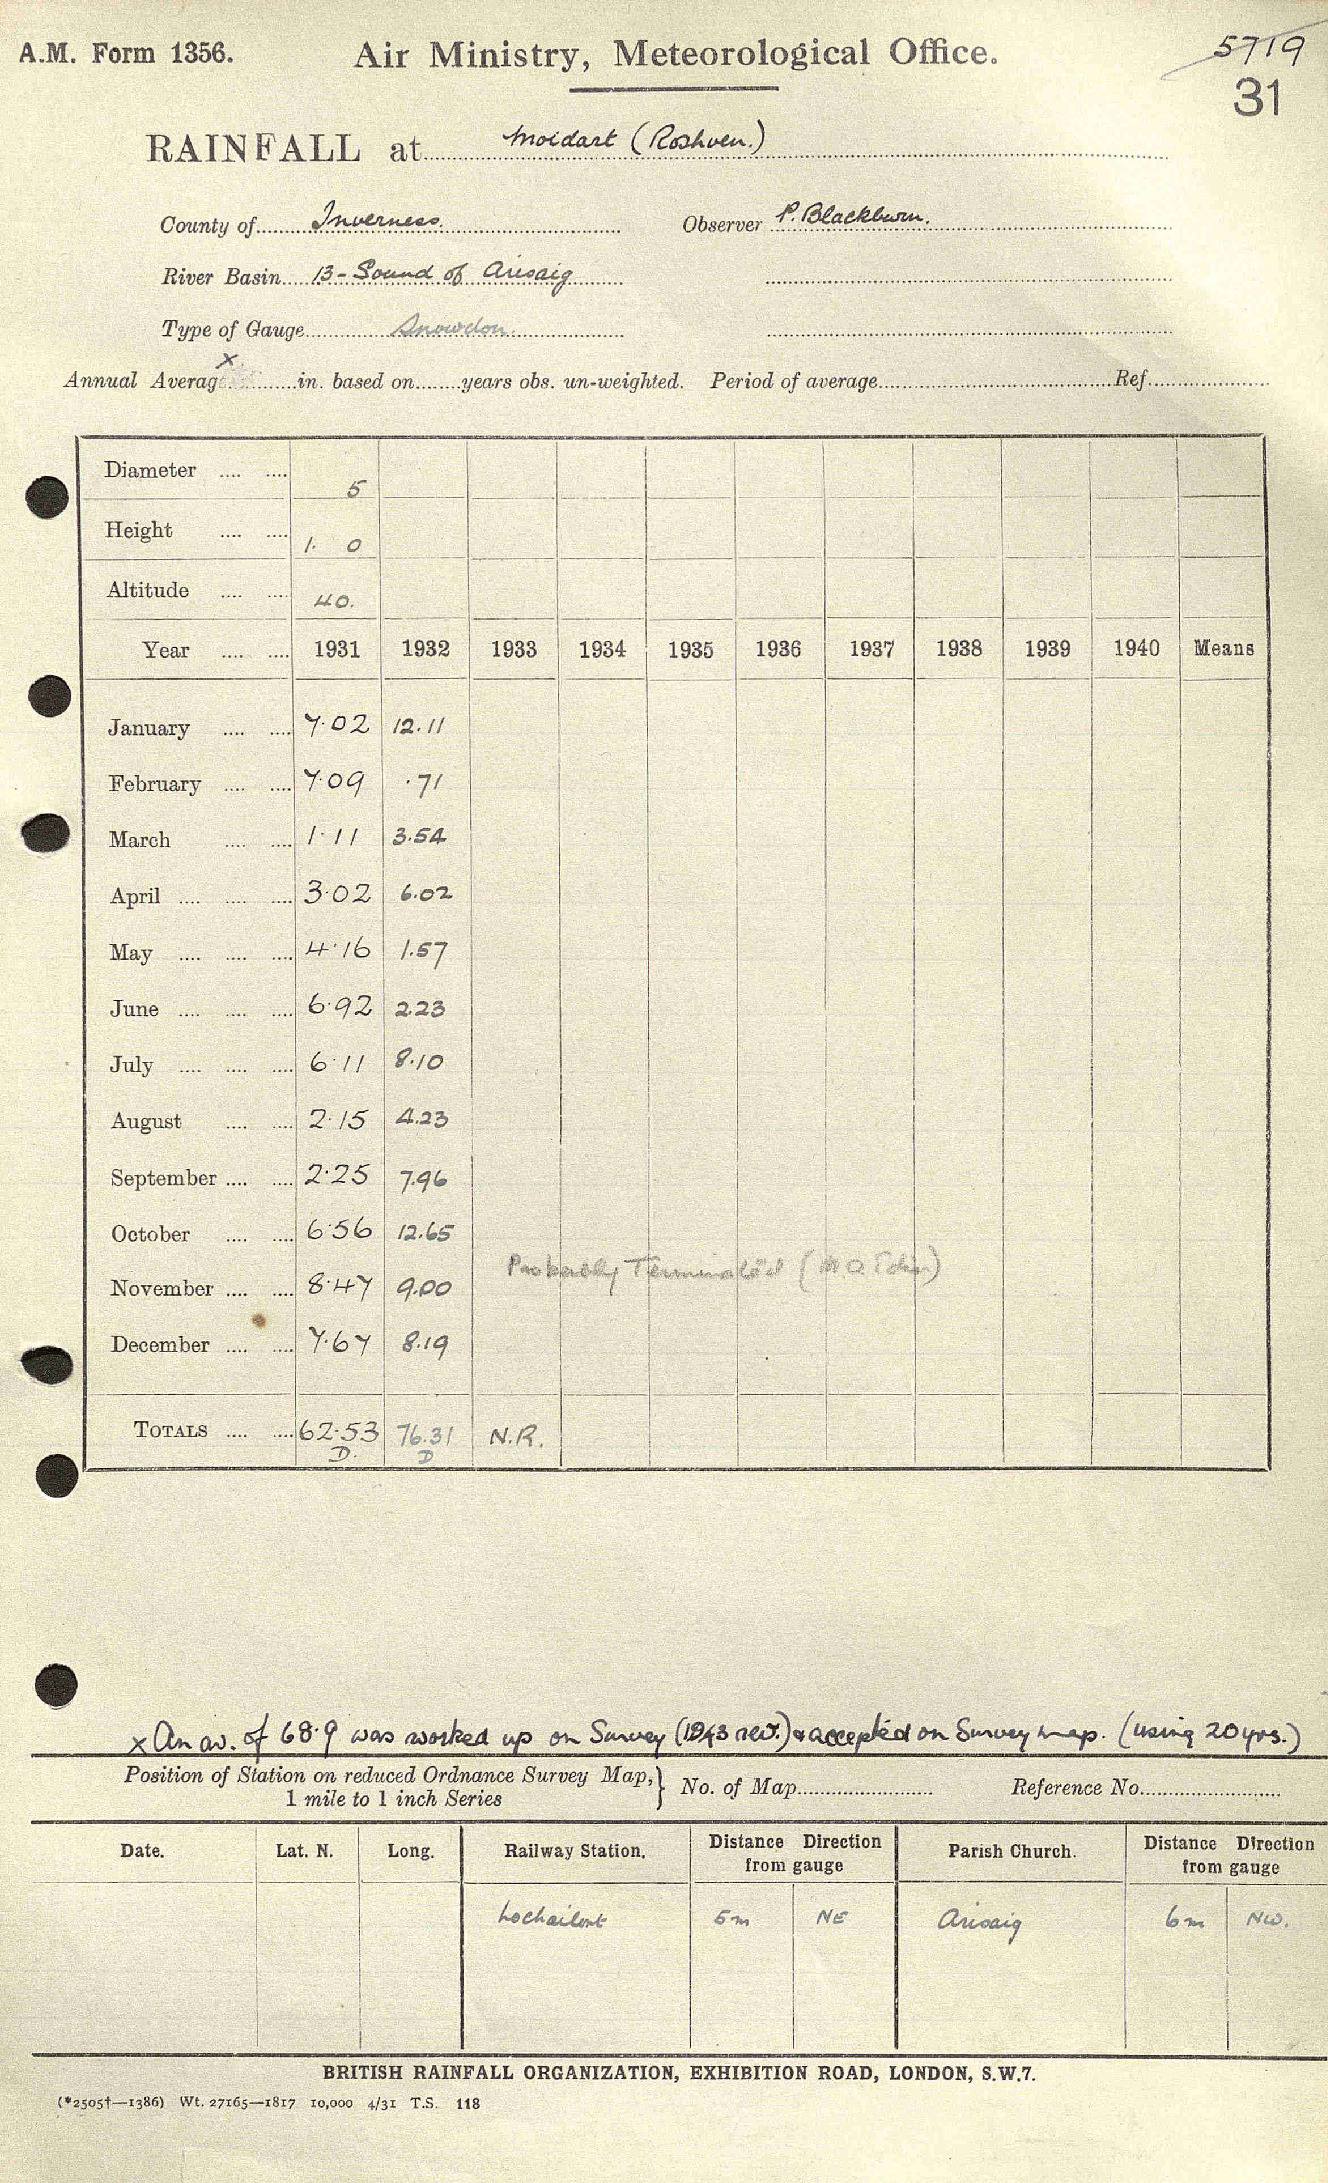 A.M. Form 1356. Air Ministry, Meteorological Office. 5719
31
RAINFALL at Moidart (Roshven.)
County of Inverness. Observer P. Blackburn.
River Basin 13 - Sound of Arisaig
Type of Gauge Snowdon.
x
Annual Average in. based on years obs. un-weighted. Period of average Ref.
Diameter .... .... 5
Height .... .... 1. 0
Altitude .... .... 40.
Year .... .... 1931 1932 1933 1934 1935 1936 1937 1938 1939 1940 Means
January .... .... 7.02 12.11
February .... .... 7.09 .71
March .... .... 1.11 3.54
April .... .... .... 3.02 6.02
May .... .... .... 4.16 1.57
June .... .... .... 6.92 2.23
July .... .... .... 6.11 8.10
August .... .... 2.15 4.23
September .... .... 2.25 7.96
October .... .... 6.56 12.65
Probably Terminated (M O Edin)
November .... .... 8.47 9.00
December .... .... 7.67 8.19
TOTALS .... .... 62.53 76.31 N.R.
D. D
x An av. of 68.9 was worked up on Survey (1943 rev.) & accepted on Survey map. (using 20 yrs.)
Position of Station on reduced Ordnance Survey Map, } No. of Map Reference No.
1 mile to 1 inch Series
Date. Lat. N. Long. Railway Station. Distance Direction from gauge Parish Church. Distance Direction from gauge
Lochailort 5m NE Arisaig 6m NW.
BRITISH RAINFALL ORGANIZATION, EXHIBITION ROAD, LONDON, S.W.7.
(*2505†—1386) Wt. 27165—1817 10,000 4/31 T.S. 118